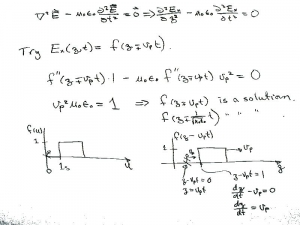 ∇²E⃗ − μ₀ε₀ ∂²E⃗/∂t² = 0⃗ ⇒ ∂²Eₓ/∂z² − μ₀ε₀ ∂²Eₓ/∂t² = 0
Try Eₓ(z,t) = f(z∓vₚt).
f''(z∓vₚt)·1 − μ₀ε₀ f''(z∓vₚt) vₚ² = 0
vₚ²μ₀ε₀ = 1 ⇒ f(z∓vₚt) is a solution.
f(z∓ 1/√μ₀ε₀ t) " " "
f(u)
1
0
1s
u
f(z−vₚt)
1
→vₚ
z
z−vₚt=0
z=vₚt
z−vₚt=1
dz/dt − vₚ=0
dz/dt = vₚ